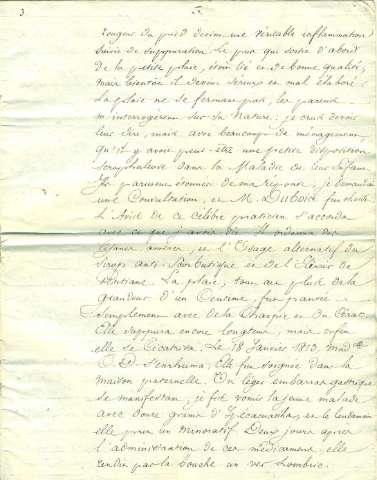 3
rougeur du pied devint une véritable inflammation
suivie de suppuration. Le pus qui sortit d'abord
de la petite plaie, était lié et de bonne qualité,
mais bientôt il devint séreux et mal élaboré.
La plaie ne se fermant pas, les parens
m'interrogèrent sur sa nature: je crus devoir
leur dire, mais avec beaucoup de ménagemens,
qu'il y avait peut-être une petite disposition
scrophuleuse dans la Maladie de leur Enfant.
Ils parurent étonnés de ma réponse, je demandai
une Consultation, et M. DUBOIS fut choisi.
L'Avis de ce célèbre praticien s'accorda
avec ce que j'avais dit. Il ordonna des
tisanes amères, et l'Usage alternatif du
sirop anti-Scorbutique et de l'Elixir de
Gentiane. La plaie, tout au plus de la
grandeur d'un Centime, fut pansée
simplement avec de la Charpie et du Cérat.
Elle suppura encore longtems, mais enfin
elle se Cicatrisa. Le 18 Janvier 1813, Md.lle
O. D. s'enrhuma. Elle fut soignée dans la
maison paternelle. Un léger embarras gastrique
se manifestant, je fis vomir la jeune malade
avec douze grains d'Ipécacuanha, et le lendemain
elle prit un Minoratif. Deux jours après
l'administration de ces médicamens, elle
rendit par la bouche un ver Lombric.